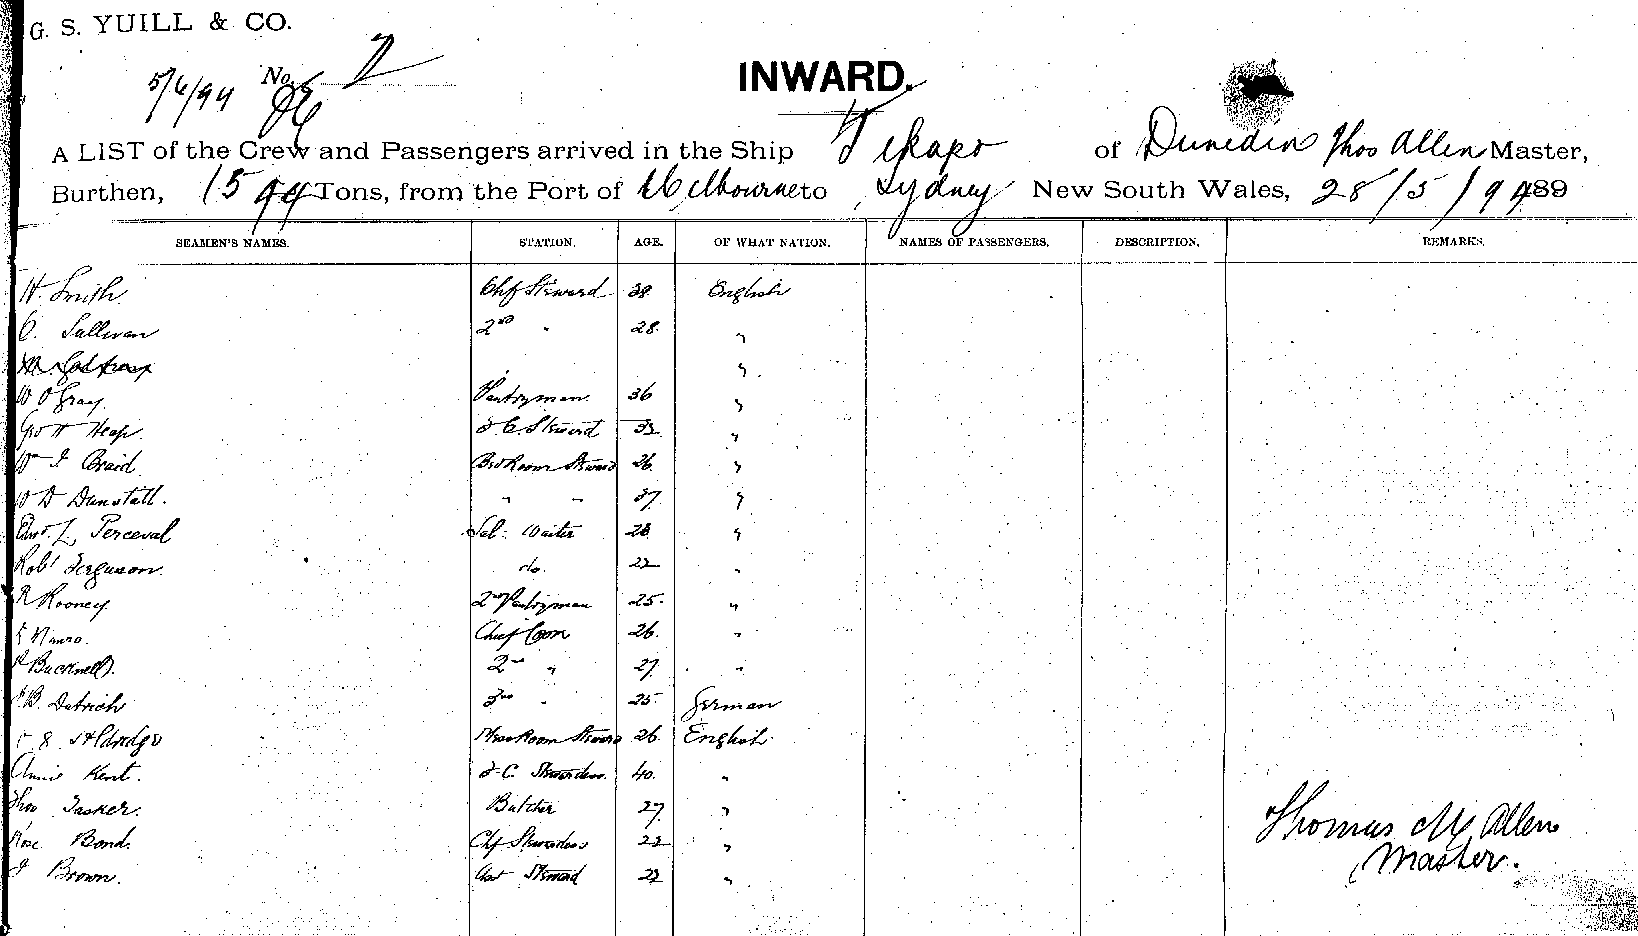 G. S. YUILL & CO.
5/6/94 No.
INWARD.
A LIST of the Crew and Passengers arrived in the Ship Tekapo of Dunedin Thos Allen Master,
Burthen, 15 Tons, from the Port of Melbourne to Sydney New South Wales, 28/5/94 189
SEAMEN'S NAMES. STATION. AGE. OF WHAT NATION. NAMES OF PASSENGERS. DESCRIPTION. REMARKS.
H. Smith. Chf Steward 38 English
C. Sullivan 2nd " 28 "
"
W O Gray. Pantryman 36 "
Geo H Heap. Steward 33 "
Wm J Braid. Bed Room Steward 26 "
W D Dunstall. " " 37 "
Edwd L Perceval Sal. Waiter 28 "
Robt Ferguson. do. 22 "
R Rooney 2nd Pantryman 25 "
Munro. Chief Cook 26 "
Bucknell. 2nd " 27 "
B. Detrich 3rd " 25 German
Aldridge Mess Room Steward 26 English
Annie Kent. Stewardess. 40 "
Thos Tasker. Butcher 27 "
Rose Bond. Chf Stewardess 22 "
J Brown. Asst Steward 23 "
Thomas M Allen
Master.